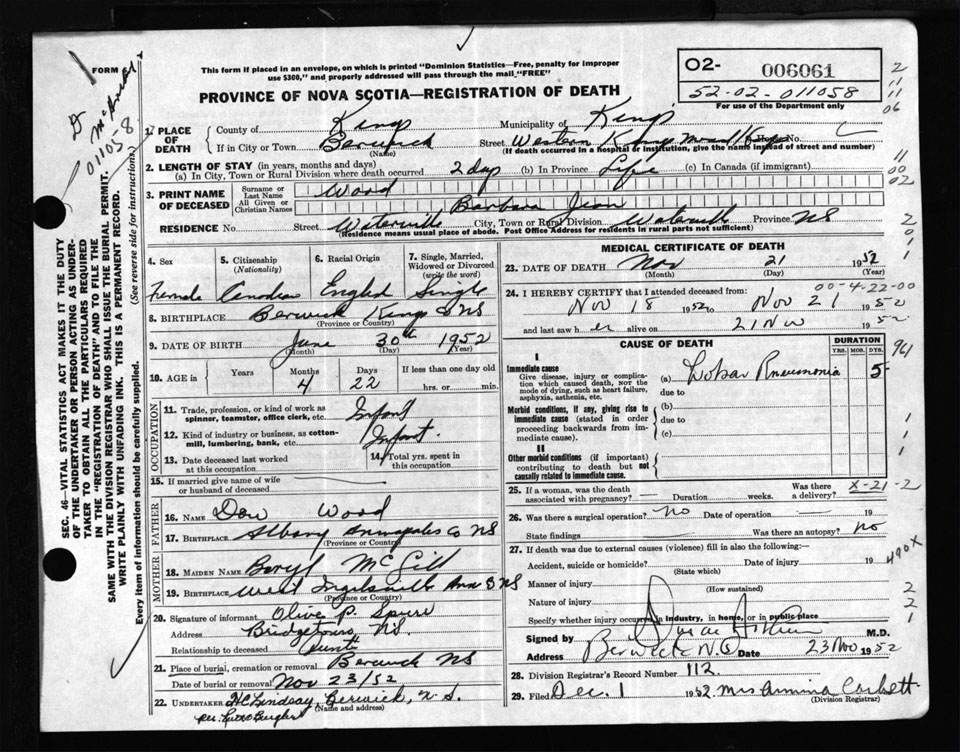 FORM
This form if placed in an envelope, on which is printed "Dominion Statistics—Free, penalty for improper
use $300," and properly addressed will pass through the mail "FREE"
O2- 006061
52-02-011058
For use of the Department only
PROVINCE OF NOVA SCOTIA—REGISTRATION OF DEATH
011058
1. PLACE OF DEATH
County of Kings Municipality of Kings
If in City or Town Berwick Street Western Kings Mem'l Hosp House No.
(Name) (If death occurred in a hospital or institution, give the name instead of street and number)
2. LENGTH OF STAY (in years, months and days)
(a) In City, Town or Rural Division where death occurred 2 days (b) In Province Life (c) In Canada (if immigrant)
3. PRINT NAME OF DECEASED
Surname or Last Name Wood
All Given or Christian Names Barbara Jean
RESIDENCE No. Street Waterville City, Town or Rural Division Waterville Province NS
(Residence means usual place of abode. Post Office Address for residents in rural parts not sufficient)
4. Sex 5. Citizenship (Nationality) 6. Racial Origin 7. Single, Married, Widowed or Divorced (write the word)
Female Canadian English Single
8. BIRTHPLACE Berwick Kings NS
(Province or Country)
9. DATE OF BIRTH June 30th 1952
(Month) (Day) (Year)
10. AGE in Years Months Days If less than one day old
4 22 hrs. or min.
OCCUPATION
11. Trade, profession, or kind of work as spinner, teamster, office clerk, etc. Infant
12. Kind of industry or business, as cotton-mill, lumbering, bank, etc. Infant.
13. Date deceased last worked at this occupation 14. Total yrs. spent in this occupation
15. If married give name of wife or husband of deceased
FATHER
16. NAME Don Wood
17. BIRTHPLACE Albany Annapolis Co NS
(Province or Country)
MOTHER
18. MAIDEN NAME Beryl McGill
19. BIRTHPLACE West Inglisville Anna NS
(Province or Country)
20. Signature of informant Olive P. Spurr
Address Bridgetown NS.
Relationship to deceased Aunt
21. Place of burial, cremation or removal Berwick NS
Date of burial or removal Nov 23/52
22. UNDERTAKER H C Lindsay, Berwick, N.S.
(Name and address)
MEDICAL CERTIFICATE OF DEATH
23. DATE OF DEATH Nov 21 1952
(Month) (Day) (Year)
00-4-22-00
24. I HEREBY CERTIFY that I attended deceased from:
Nov 18 1952 to Nov 21 1952
and last saw h er alive on 21 Nov 1952
CAUSE OF DEATH DURATION
YRS. MOS. DYS.
961
I
Immediate cause
Give disease, injury or complication which caused death, not the mode of dying, such as heart failure, asphyxia, asthenia, etc.
(a) Lobar Pneumonia 5
due to
Morbid conditions, if any, giving rise to immediate cause (stated in order proceeding backwards from immediate cause).
(b)
due to
(c)
II
Other morbid conditions (if important) contributing to death but not causally related to immediate cause.
25. If a woman, was the death associated with pregnancy? — Duration weeks. Was there a delivery?
X-21-2
26. Was there a surgical operation? no Date of operation — 19
State findings Was there an autopsy? no
27. If death was due to external causes (violence) fill in also the following:—
Accident, suicide or homicide? Date of injury 19
(State which)
490X
Manner of injury
(How sustained)
Nature of injury
Specify whether injury occurred in industry, in home, or in public place
Signed by M.D.
Address Berwick N.S. Date 23 Nov 1952
28. Division Registrar's Record Number 112.
29. Filed Dec. 1 1952. Mrs Ammina Corbett
(Division Registrar)
SEC. 46—VITAL STATISTICS ACT MAKES IT THE DUTY
OF THE UNDERTAKER OR PERSON ACTING AS UNDER-
TAKER TO OBTAIN ALL THE PARTICULARS REQUIRED
IN THE "REGISTRATION OF DEATH" AND TO FILE THE
SAME WITH THE DIVISION REGISTRAR WHO SHALL ISSUE THE BURIAL PERMIT.
WRITE PLAINLY WITH UNFADING INK. THIS IS A PERMANENT RECORD.
Every item of information should be carefully supplied. (See reverse side for instructions.)